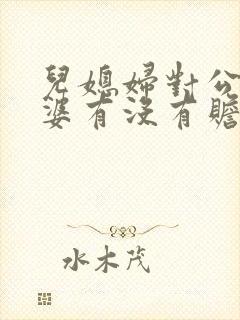 兒媳婦對公
婆有沒有贍
水木茂